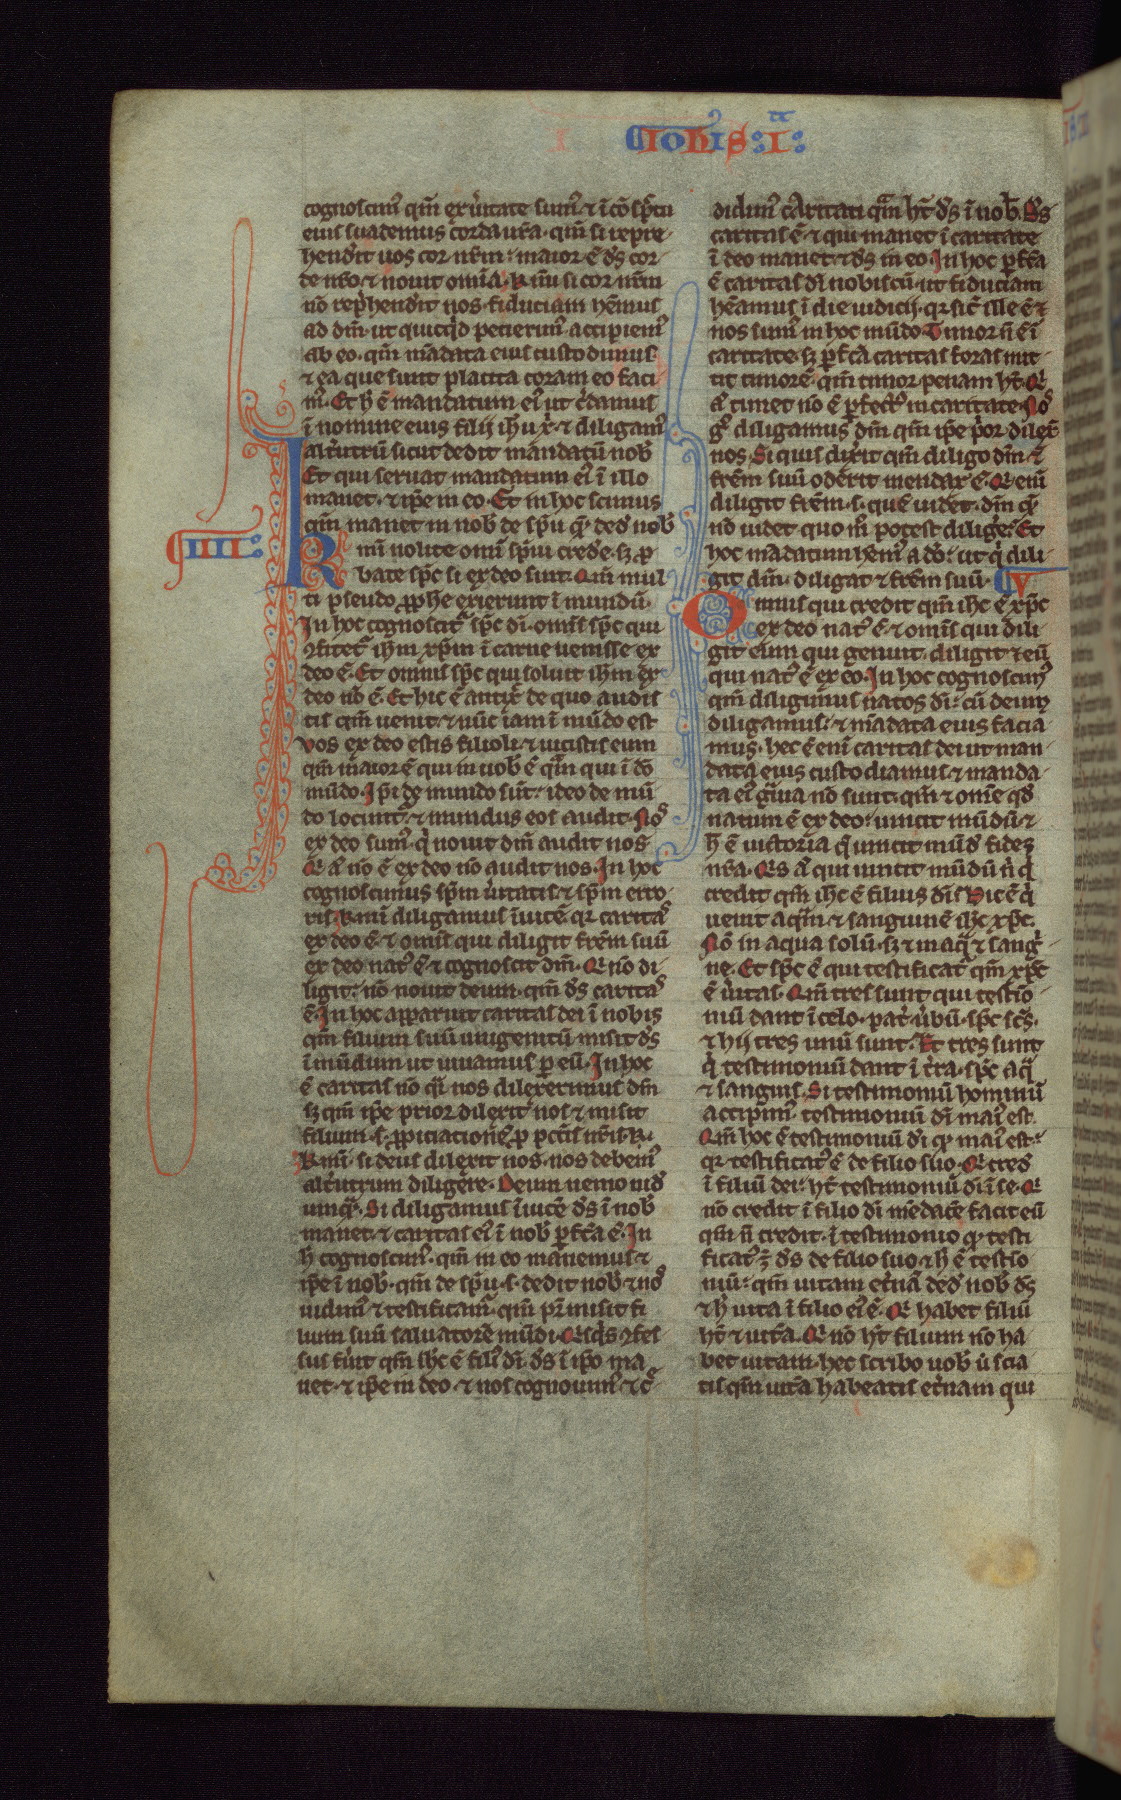 Ioh̄is: I: ca
cognoscim᷒ qm̄ ex ueritate sum᷒ ⁊ ī cō sp̄ctu
eius suademus corda nr̄a. qm̄ si repre
henderit uos cor nr̄m: maior ē d̄s cor
de nr̄o ⁊ nouit om̄ia. K̄mi si cor nr̄m
nō rep̄henderit nos. fiduciam hēmus
ad dm̄. ut quicq̇d petierim᷒ accipiem᷒
ab eo. qm̄ mādata eius custodimus.
⁊ ea que sunt placita coram eo faci
m᷒. Et h̄ ē mandatum ei᷒ ut c̄damus
ī nomine eius filij ih̄u xp̄i. ⁊ diligam᷒
alt̄utrū sicut dedit mandatū nob̄
Et qui seruat mandatum ei᷒ ī illo
manet. ⁊ ip̄e in eo. Et in hoc scimus
qm̄ manet in nob̄ de sp̄u q̄ ded̄ nob̄
IIII:
K mi nolite omī sp̄iu credē. sꝫ ꝓ
bate sp̄c si ex deo sunt. Qm̄ mul
ti pseudo ꝓphe exierunt ī mundū.
In hoc cognoscit᷑ sp̄c di. omīs sp̄c qui
ꝯfitet᷑ ih̄m xp̄m ī carne uenisse ex
deo ē. Et omnis sp̄c qui soluit ih̄m ex
deo nō ē. Et hic ē antix̄p̄c de quo audis
tis qm̄ uenit. ⁊ nūc iam ī mūdo est
Vos ex deo estis filioli ⁊ uicistis eum
qm̄ maior ē qui in uob̄ ē qm̄ qui ī hō
mūdo. Ip̄i de mundo sūt: ideo de mū
do locunt᷑. ⁊ mundus eos audit. No᷒
ex deo sum᷒. q̇ nouit dm̄ audit nos
Qi aū nō ē ex deo nō audit nos. In hoc
cognoscimus sp̄m ūitatis ⁊ sp̄m erro
ris. K̄mi diligamus īuicē. qꝛ carita᷒
ex deo ē. ⁊ omīs qui diligit frēm suū
ex deo nat᷒ ē ⁊ cognoscit dm̄. Qi nō di
ligit: nō nouit deum. qm̄ d̄s carita᷒
ē. In hoc apparuit caritas dei ī nobis
qm̄ filium suū unigenitū misit d̄s
ī mūdum ut uiuamus p eū. In hoc
ē caritas nō qi nos dilexerimus dm̄
sꝫ qm̄ ip̄e prior dilexit nos ⁊ misit
filium .s. ꝓpiciationē ꝓ pctīs nr̄is. K̄.
K̄mi. si deus dilexit nos. nos debem᷒
alt̄utrum diligere. Deum nemo uid̄
umq̄. Si diligamus īuicē d̄s ī nob̄
manet. ⁊ caritas ei᷒ ī nob̄ pfc̄a ē. In
h̄ cognoscim᷒. qm̄ in eo manemus ⁊
ip̄e ī nob̄. qm̄ de sp̄u .s. dedit nob̄ ⁊ no᷒
uidim᷒ ⁊ testificam᷑. qm̄ pr̄ misit fi
lium suū saluatorē mūdi. Qisq̇s ꝯfes
sus fūit qm̄ ih̄c ē fili᷒ di. d̄s ī ip̄o ma
net. ⁊ ip̄e in deo. ⁊ nos cognouim᷒ ⁊ c̄
didim᷒ caritati qm̄ ht̄ d̄s ī nob̄. D̄s
caritas ē ⁊ qui manet ī caritate
ī deo manet. ⁊ d̄s in eo. In hoc pfc̄a
ē caritas di nobiscū. ut fiduciam
hēamus ī die iudicij. qꝛ sic̄ ille ē ⁊
nos sum᷒ in hoc mūdo. Timor n̄ ē ī
caritate. sꝫ pfc̄a caritas foras mit
tit timorē. qm̄ timor penam ht̄. Qi
aū timet nō ē pfect᷒ in caritate. No᷒
g᷒ diligamus dm̄ qm̄ ip̄e p̄or dilex̄
nos. Si quis dixit qm̄ diligo dm̄ ⁊
frēm suū oderit mendax ē. Qi enī
diligit frēm .s. quē uidet. dm̄ q̄
nō uidet quo m̊ potest diligē? Et
hoc mādatum hem᷒ a dō: ut q̇ dili
git dm̄. diligat ⁊ frēm suū. V
O mnis qui credit qm̄ ih̄c ē xp̄c
ex deo nat᷒ ē. ⁊ omīs qui dili
git eum qui genuit. diligit ⁊ eū
qui nat᷒ ē ex eo. In hoc cognoscim᷒
qm̄ diligimus natos di: cū deum
diligamus. ⁊ mādata eius facia
mus. hec ē enī caritas dei ut man
data eius custodiamus. ⁊ manda
ta ei᷒ gūia nō sunt. qm̄ ⁊ om̄e qd̄
natum ē ex deo: uincit mūdū. ⁊
h̄ ē uictoria q̄ uincit mūd̄ fides
nr̄a. Qis aū qui uincit mūdū n̄ q̇
credit qm̄ ih̄c ē filius di? Hic ē q̇
uenit aqm̄ ⁊ sanguinē ih̄c xp̄c.
Nō in aqua solū. sꝫ ⁊ in aq̄ ⁊ sang̊
ne. Et sp̄c ē qui testificat᷑ qm̄ xp̄c
ē ūitas. Qm̄ tres sunt qui testīo
niū dant ī celo. pat̄. ūbū. sp̄c sc̄s.
⁊ hij tres unū sunt. Et tres sunt
q̇ testimoniū dant ī t̄ra. sp̄c aq̄
⁊ sanguis. Si testimoniū hominū
accipim᷒. testimoniū di mai᷒ est.
Qm̄ hoc ē testimoniū di qꝛ mai᷒ est:
qꝛ testificat᷒ ē de filio suo. Qi cred̄
ī filiū dei. ht̄ testimoniū di ī se. Qi
nō credit ī filio di mēdacē facit eū
qm̄ n̄ credit. ī testimonio qꝛ testi
ficat᷒ ē d̄s de filio suo. ⁊ h̄ ē testīo
niū: qm̄ uitam et̄nā ded̄ nob̄ d̄s
⁊ h̄ uita ī filio ei᷒ ē. Qi habet filiū
ht̄ ⁊ uitā. Qi nō ht̄ filium nō ha
bet uitam. hec scribo uob̄ ut scia
tis qm̄ uitā habeatis et̄nam qui